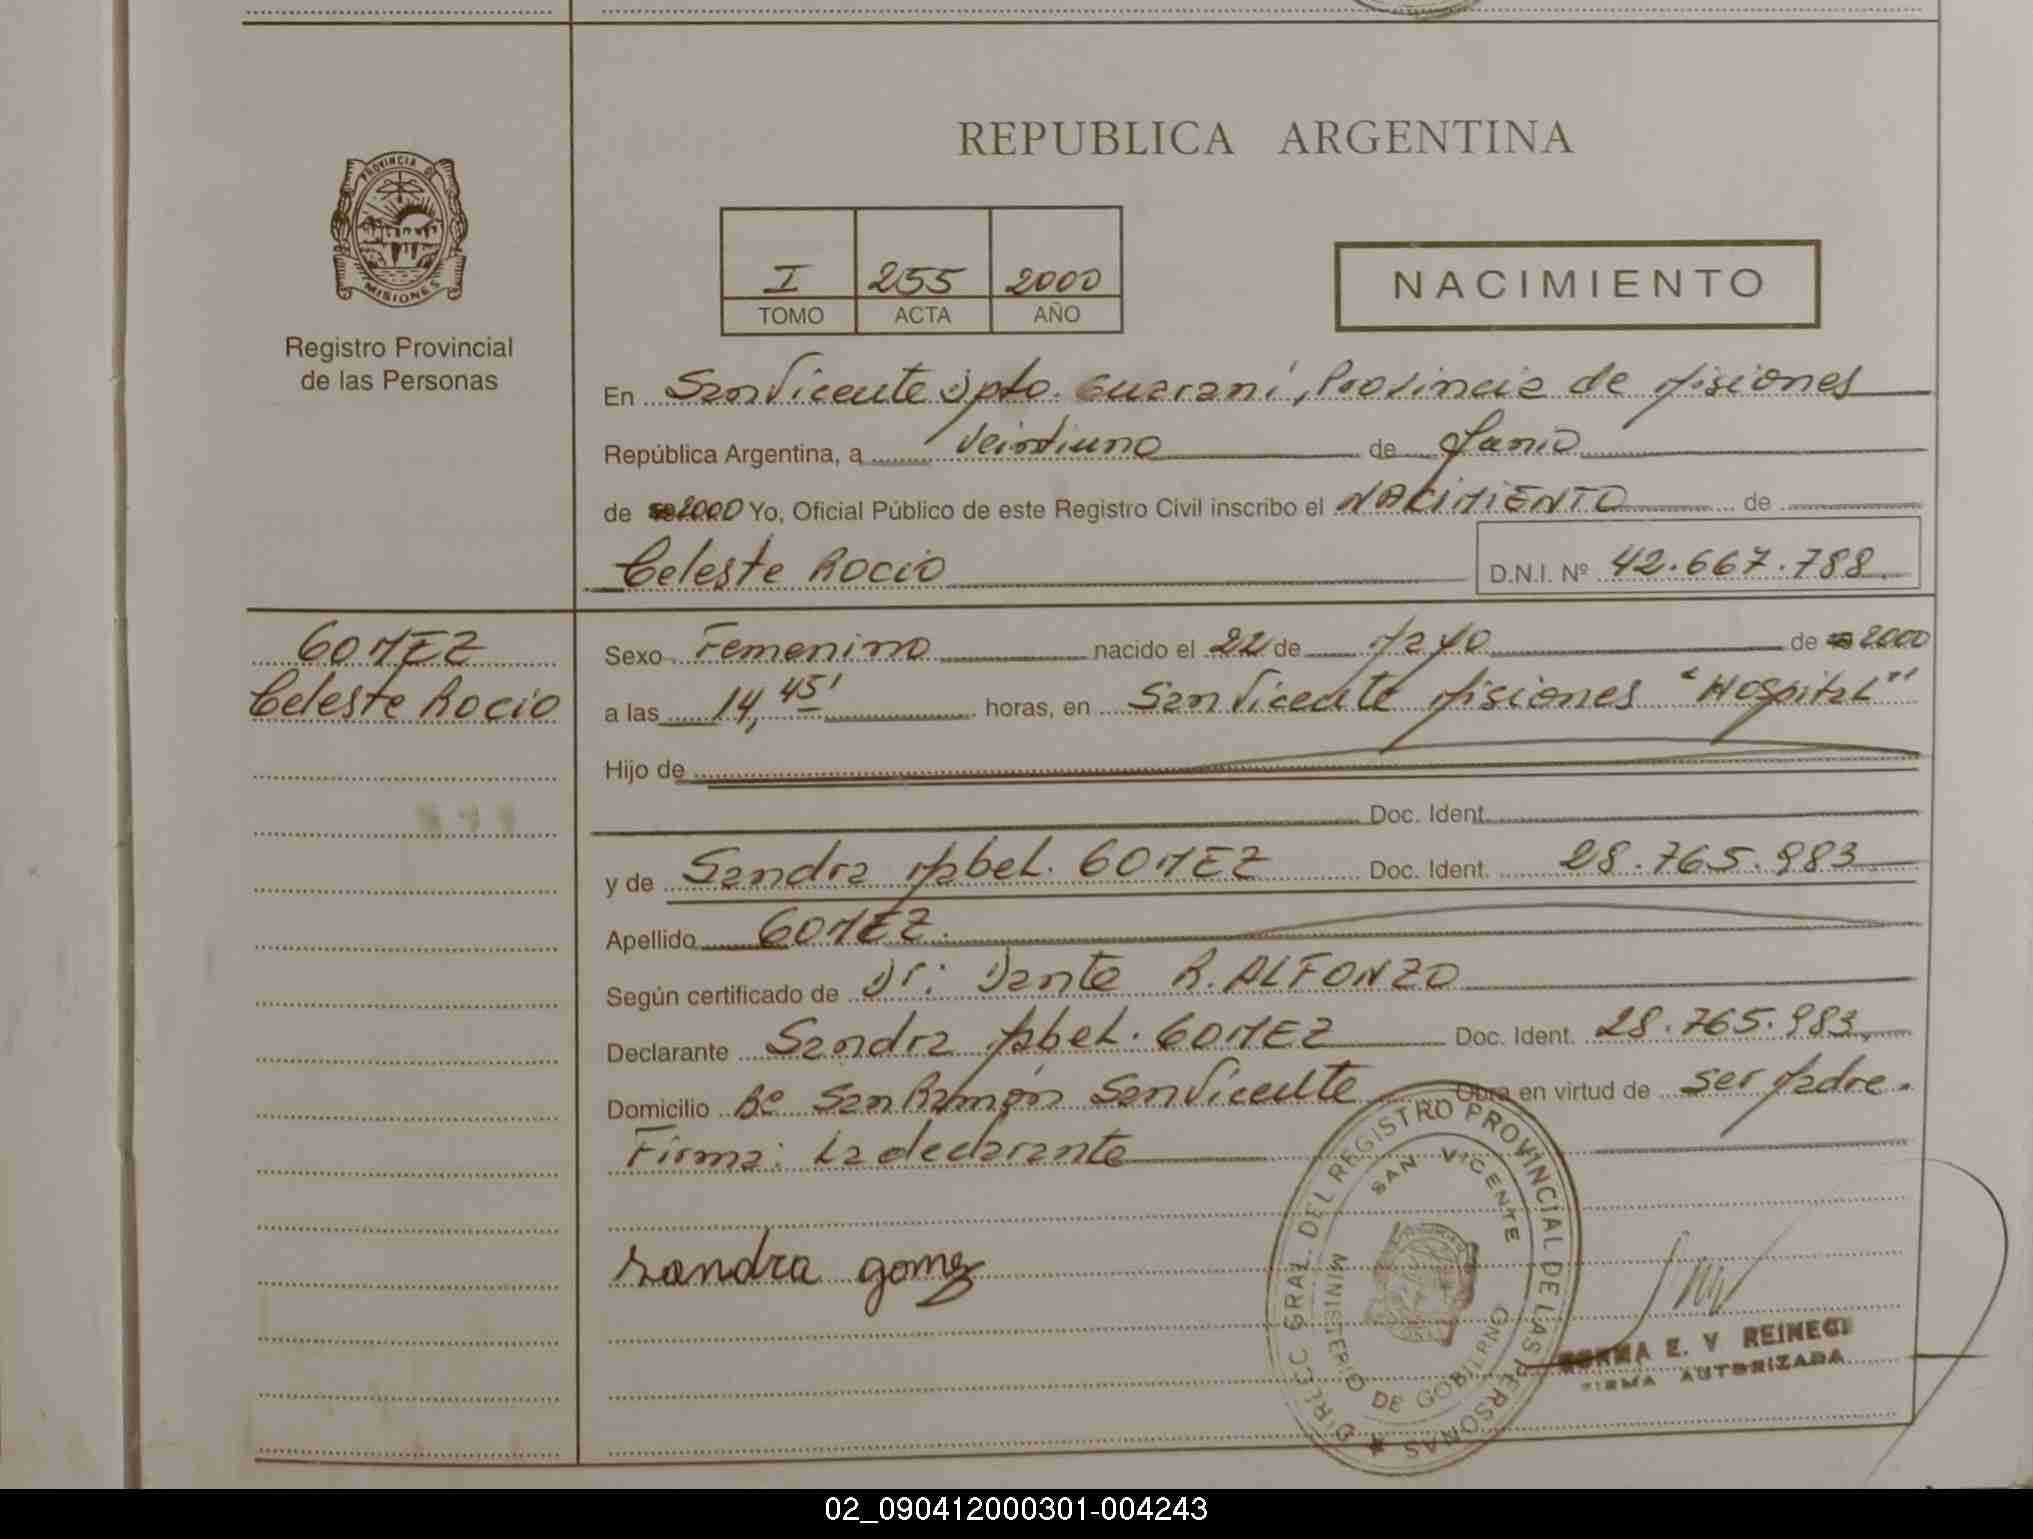 REPUBLICA ARGENTINA
PROVINCIA DE
MISIONES
Registro Provincial
de las Personas
I 255 2000
TOMO ACTA AÑO
NACIMIENTO
En San Vicente Dpto. Guaraní, Provincia de Misiones
República Argentina, a veintiuno de Junio
de 2000 Yo, Oficial Público de este Registro Civil inscribo el NACIMIENTO de
Celeste Rocio D.N.I. Nº 42.667.788
GOMEZ
Celeste Rocio
Sexo Femenino nacido el 22 de Mayo de 2000
a las 14,45' horas, en San Vicente Misiones "Hospital"
Hijo de
Doc. Ident.
y de Sandra Mabel. GOMEZ Doc. Ident. 28.765.983
Apellido GOMEZ.
Según certificado de Dr: Dante R. ALFONZO
Declarante Sandra Mabel. GOMEZ Doc. Ident. 28.765.983
Domicilio Bº San Ramón San Vicente Obra en virtud de ser Madre.
Firma: La declarante
sandra gomez
DIREC GRAL. DEL REGISTRO PROVINCIAL DE LAS PERSONAS
SAN VICENTE
MINISTERIO DE GOBIERNO
NORMA E. V REINEGI
FIRMA AUTORIZADA
02_090412000301-004243